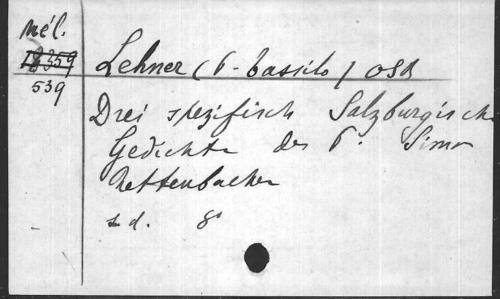 Mél.
18359
539
Lehner (P. Cassilo) OSB
Drei spezifisch Salzburgische
Gedichte des P. Simon
Rettenbacher
s d. 8°